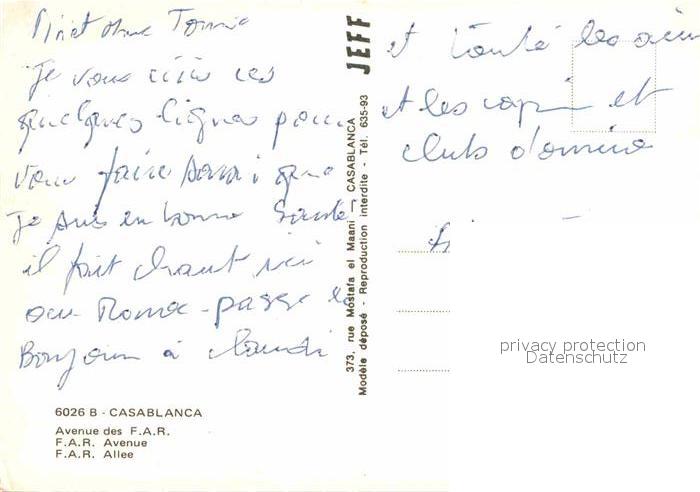 Je vous écris ces
quelques lignes pour
vous faire savoir que
Je suis en bonne Santé
il fait chaut ici
au Maroc - passe le
Bonjour à
et toute les
et les copin et
club
JEFF
373, rue Mostafa el Maani - CASABLANCA
Modèle déposé - Reproduction interdite - Tél. 635-93
privacy protection
Datenschutz
6026 B - CASABLANCA
Avenue des F.A.R.
F.A.R. Avenue
F.A.R. Allee